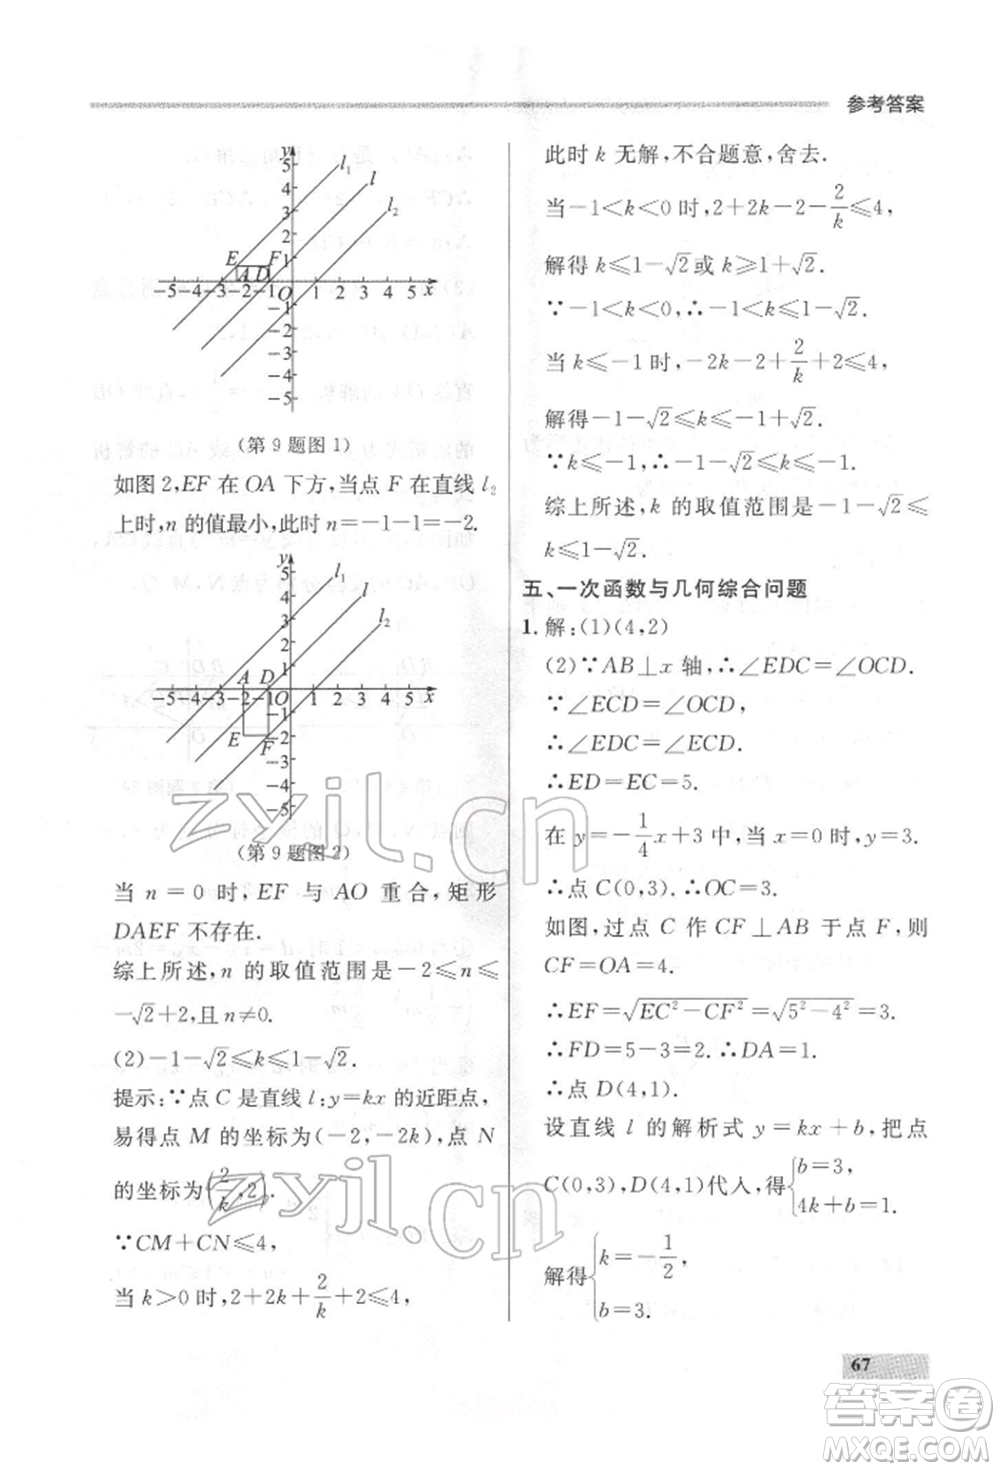 参考答案
y
5
4
3
2
1
l₁
l
l₂
E
F
A
D
-5 -4 -3 -2 -1 O 1 2 3 4 5 x
-1
-2
-3
-4
-5
(第 9 题图 1)
如图 2,EF 在 OA 下方,当点 F 在直线 l₂
上时,n 的值最小,此时 n=-1-1=-2.
y
5
4
3
2
1
l₁
l
l₂
A
D
-5 -4 -3 -2 -1 O 1 2 3 4 5 x
E
F
-1
-2
-3
-4
-5
(第 9 题图 2)
当 n = 0 时, EF 与 AO 重合, 矩形
DAEF 不存在.
综上所述, n 的取值范围是 -2≤n≤
-√2+2,且 n≠0.
(2)-1-√2≤k≤1-√2.
提示:∵点 C 是直线 l:y=kx 的近距点,
易得点 M 的坐标为(-2,-2k),点 N
的坐标为(2/k,2).
∵CM+CN≤4,
当 k>0 时,2+2k+2/k+2≤4,
此时 k 无解,不合题意,舍去.
当-1<k<0 时,2+2k-2-2/k≤4,
解得 k≤1-√2或 k≥1+√2.
∵-1<k<0,∴-1<k≤1-√2.
当 k≤-1 时,-2k-2+2/k+2≤4,
解得-1-√2≤k≤-1+√2.
∵k≤-1,∴-1-√2≤k≤-1.
综上所述,k 的取值范围是-1-√2≤
k≤1-√2.
五、一次函数与几何综合问题
1. 解:(1)(4,2)
(2)∵AB⊥x 轴,∴∠EDC=∠OCD.
∵∠ECD=∠OCD,
∴∠EDC=∠ECD.
∴ED=EC=5.
在 y=-1/4x+3 中,当 x=0 时,y=3.
∴点 C(0,3).∴OC=3.
如图,过点 C 作 CF⊥AB 于点 F,则
CF=OA=4.
∴EF=√EC²-CF²=√5²-4²=3.
∴FD=5-3=2.∴DA=1.
∴点 D(4,1).
设直线 l 的解析式 y=kx+b,把点
C(0,3),D(4,1)代人,得{b=3, 4k+b=1.
解得{k=-1/2, b=3.
67
zyjl.cn
zyjl.cn
答案圈
MXQE.COM